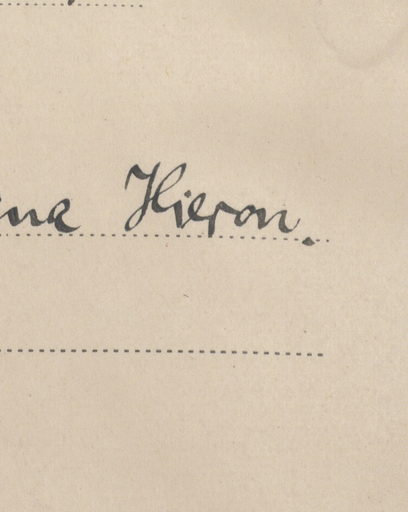 na Hieron.